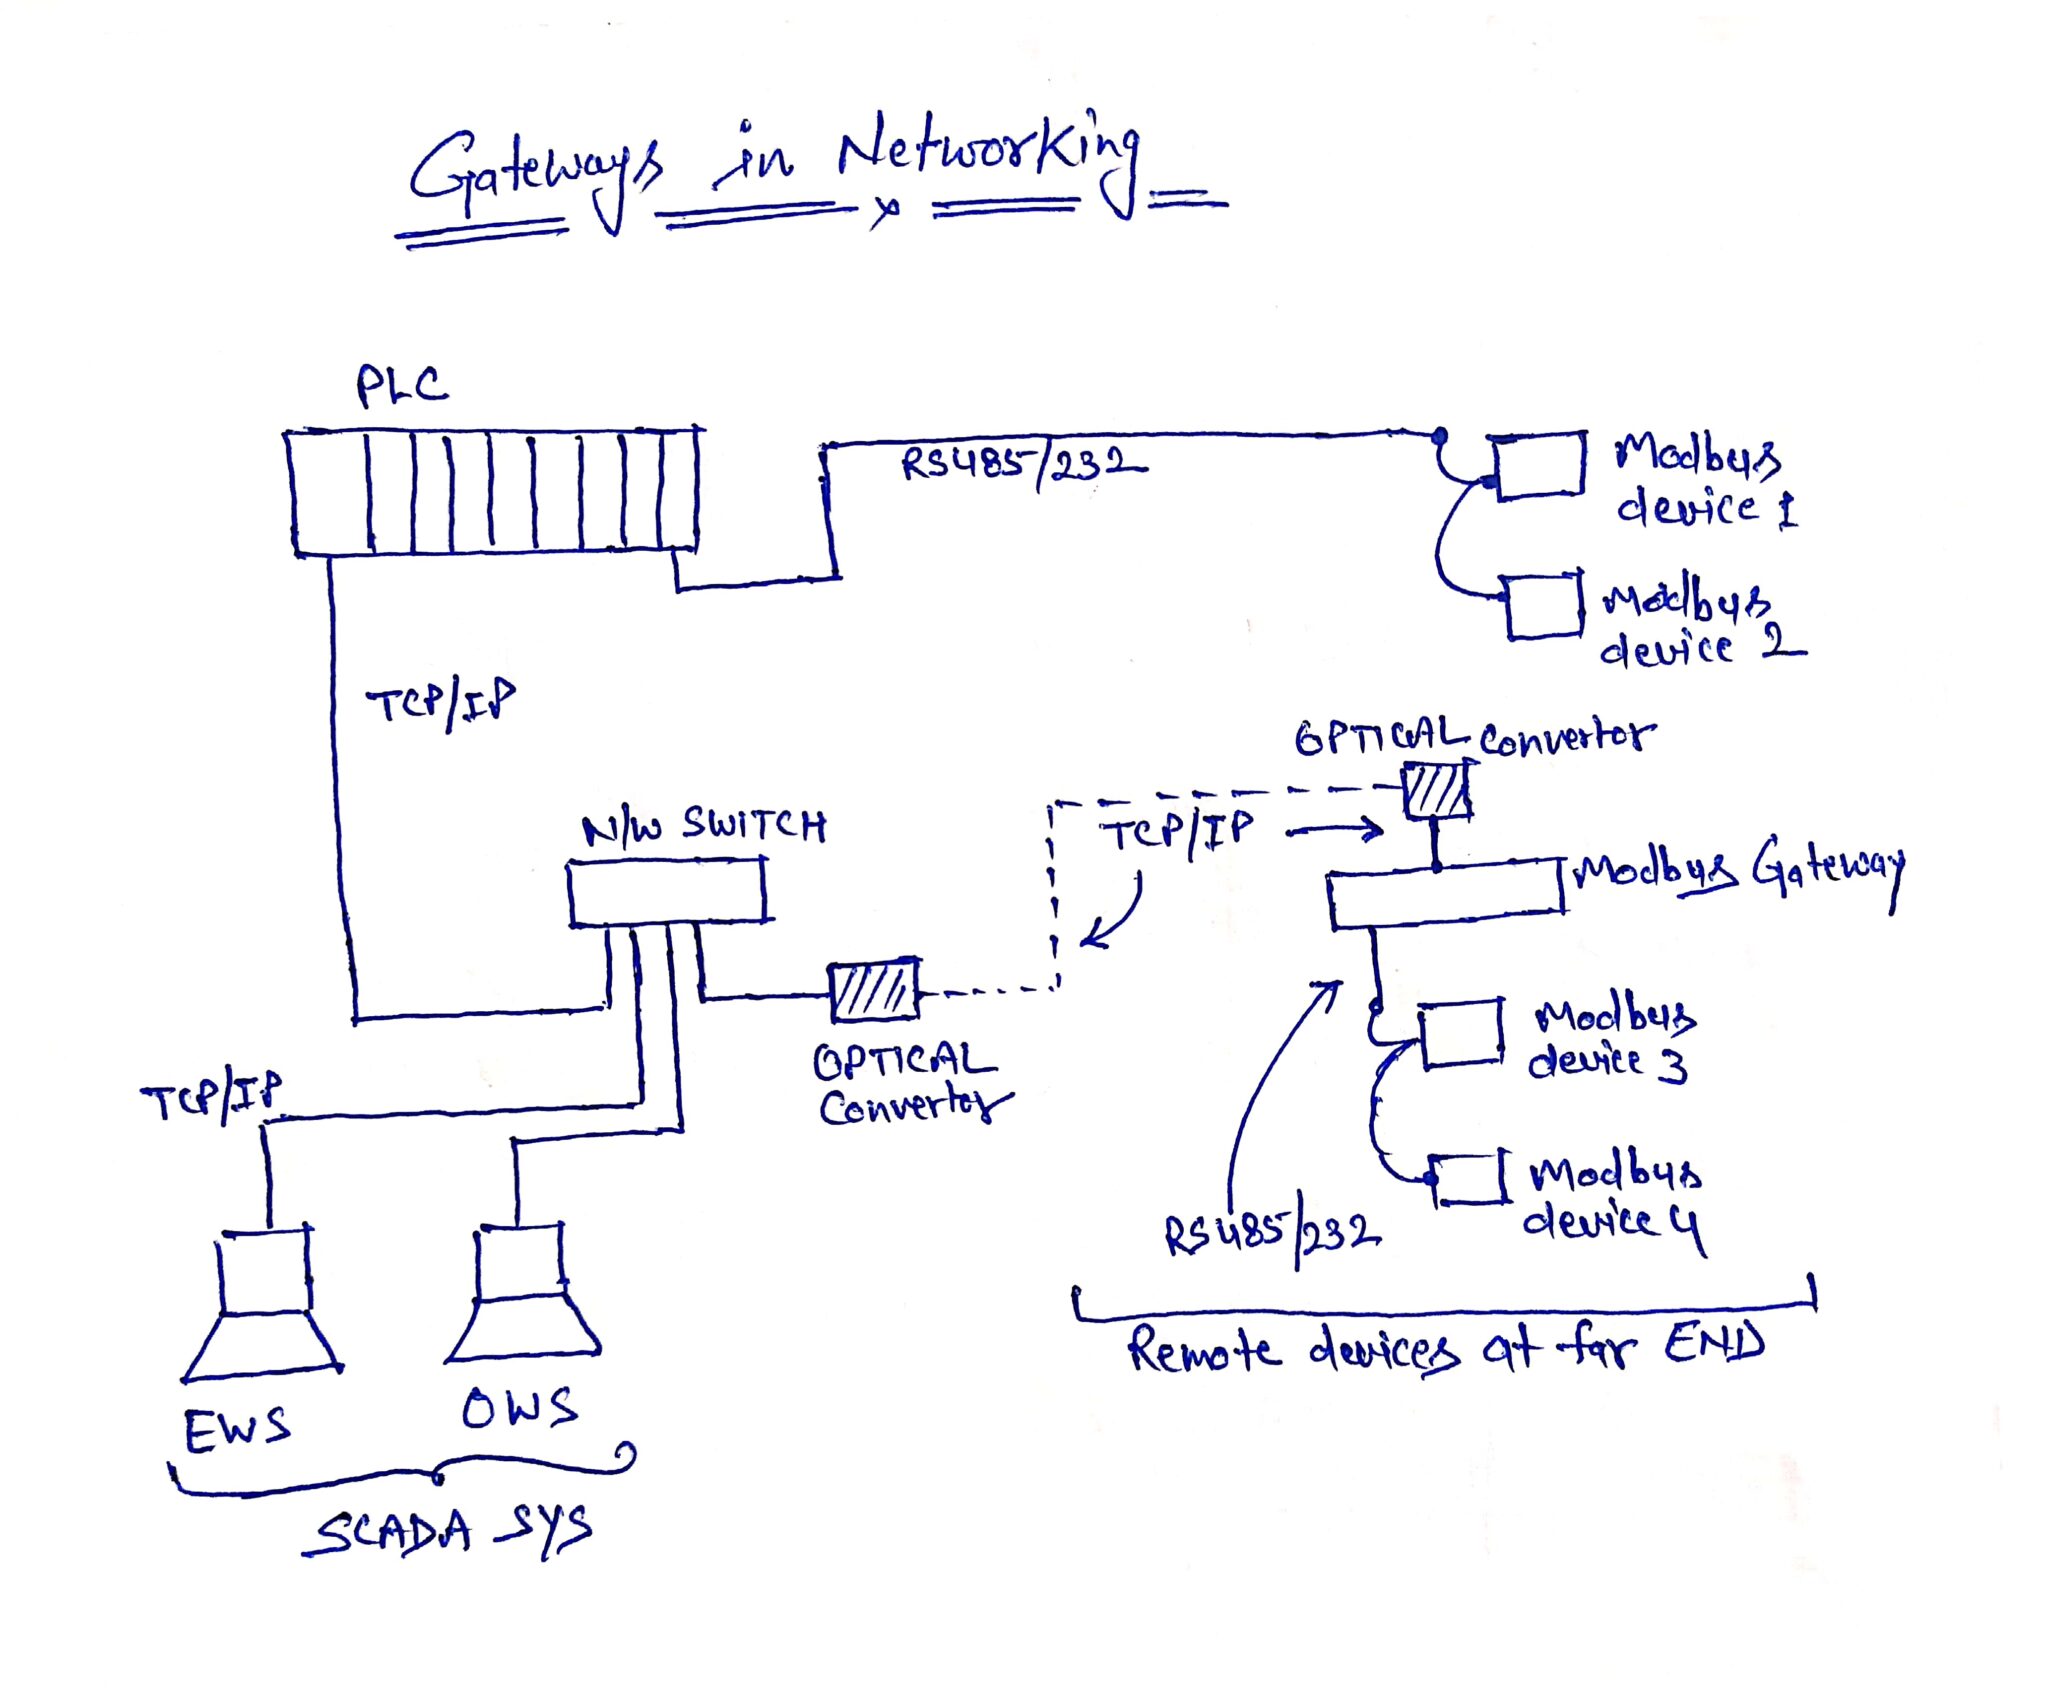 Gateways in Networking
PLC
RS485/232
Modbus
device 1
Modbus
device 2
TCP/IP
OPTICAL Convertor
N/W SWITCH
TCP/IP
Modbus Gateway
OPTICAL
Convertor
Modbus
device 3
TCP/IP
Modbus
device 4
RS485/232
Remote devices at far END
EWS
OWS
SCADA SYS